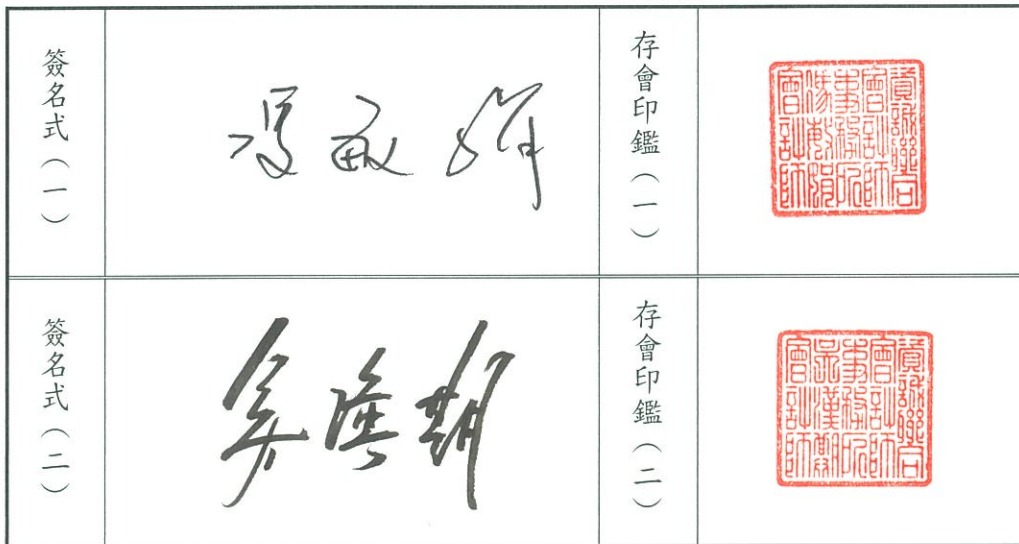 簽名式(一)
馮敏娟
存會印鑑(一)
資誠聯合
會計師
事務所
馮敏娟
會計師
簽名式(二)
吳漢期
存會印鑑(二)
資誠聯合
會計師
事務所
吳漢期
會計師